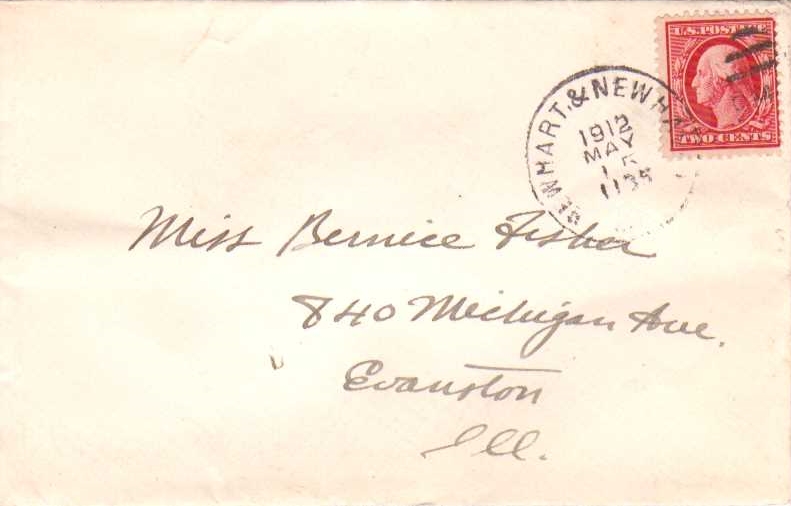 U.S. POSTAGE
TWO CENTS
NEWHART. & NEWH
1912
MAY
1135
Miss Bernice Fisher
840 Michigan Ave.
Evanston
Ill.